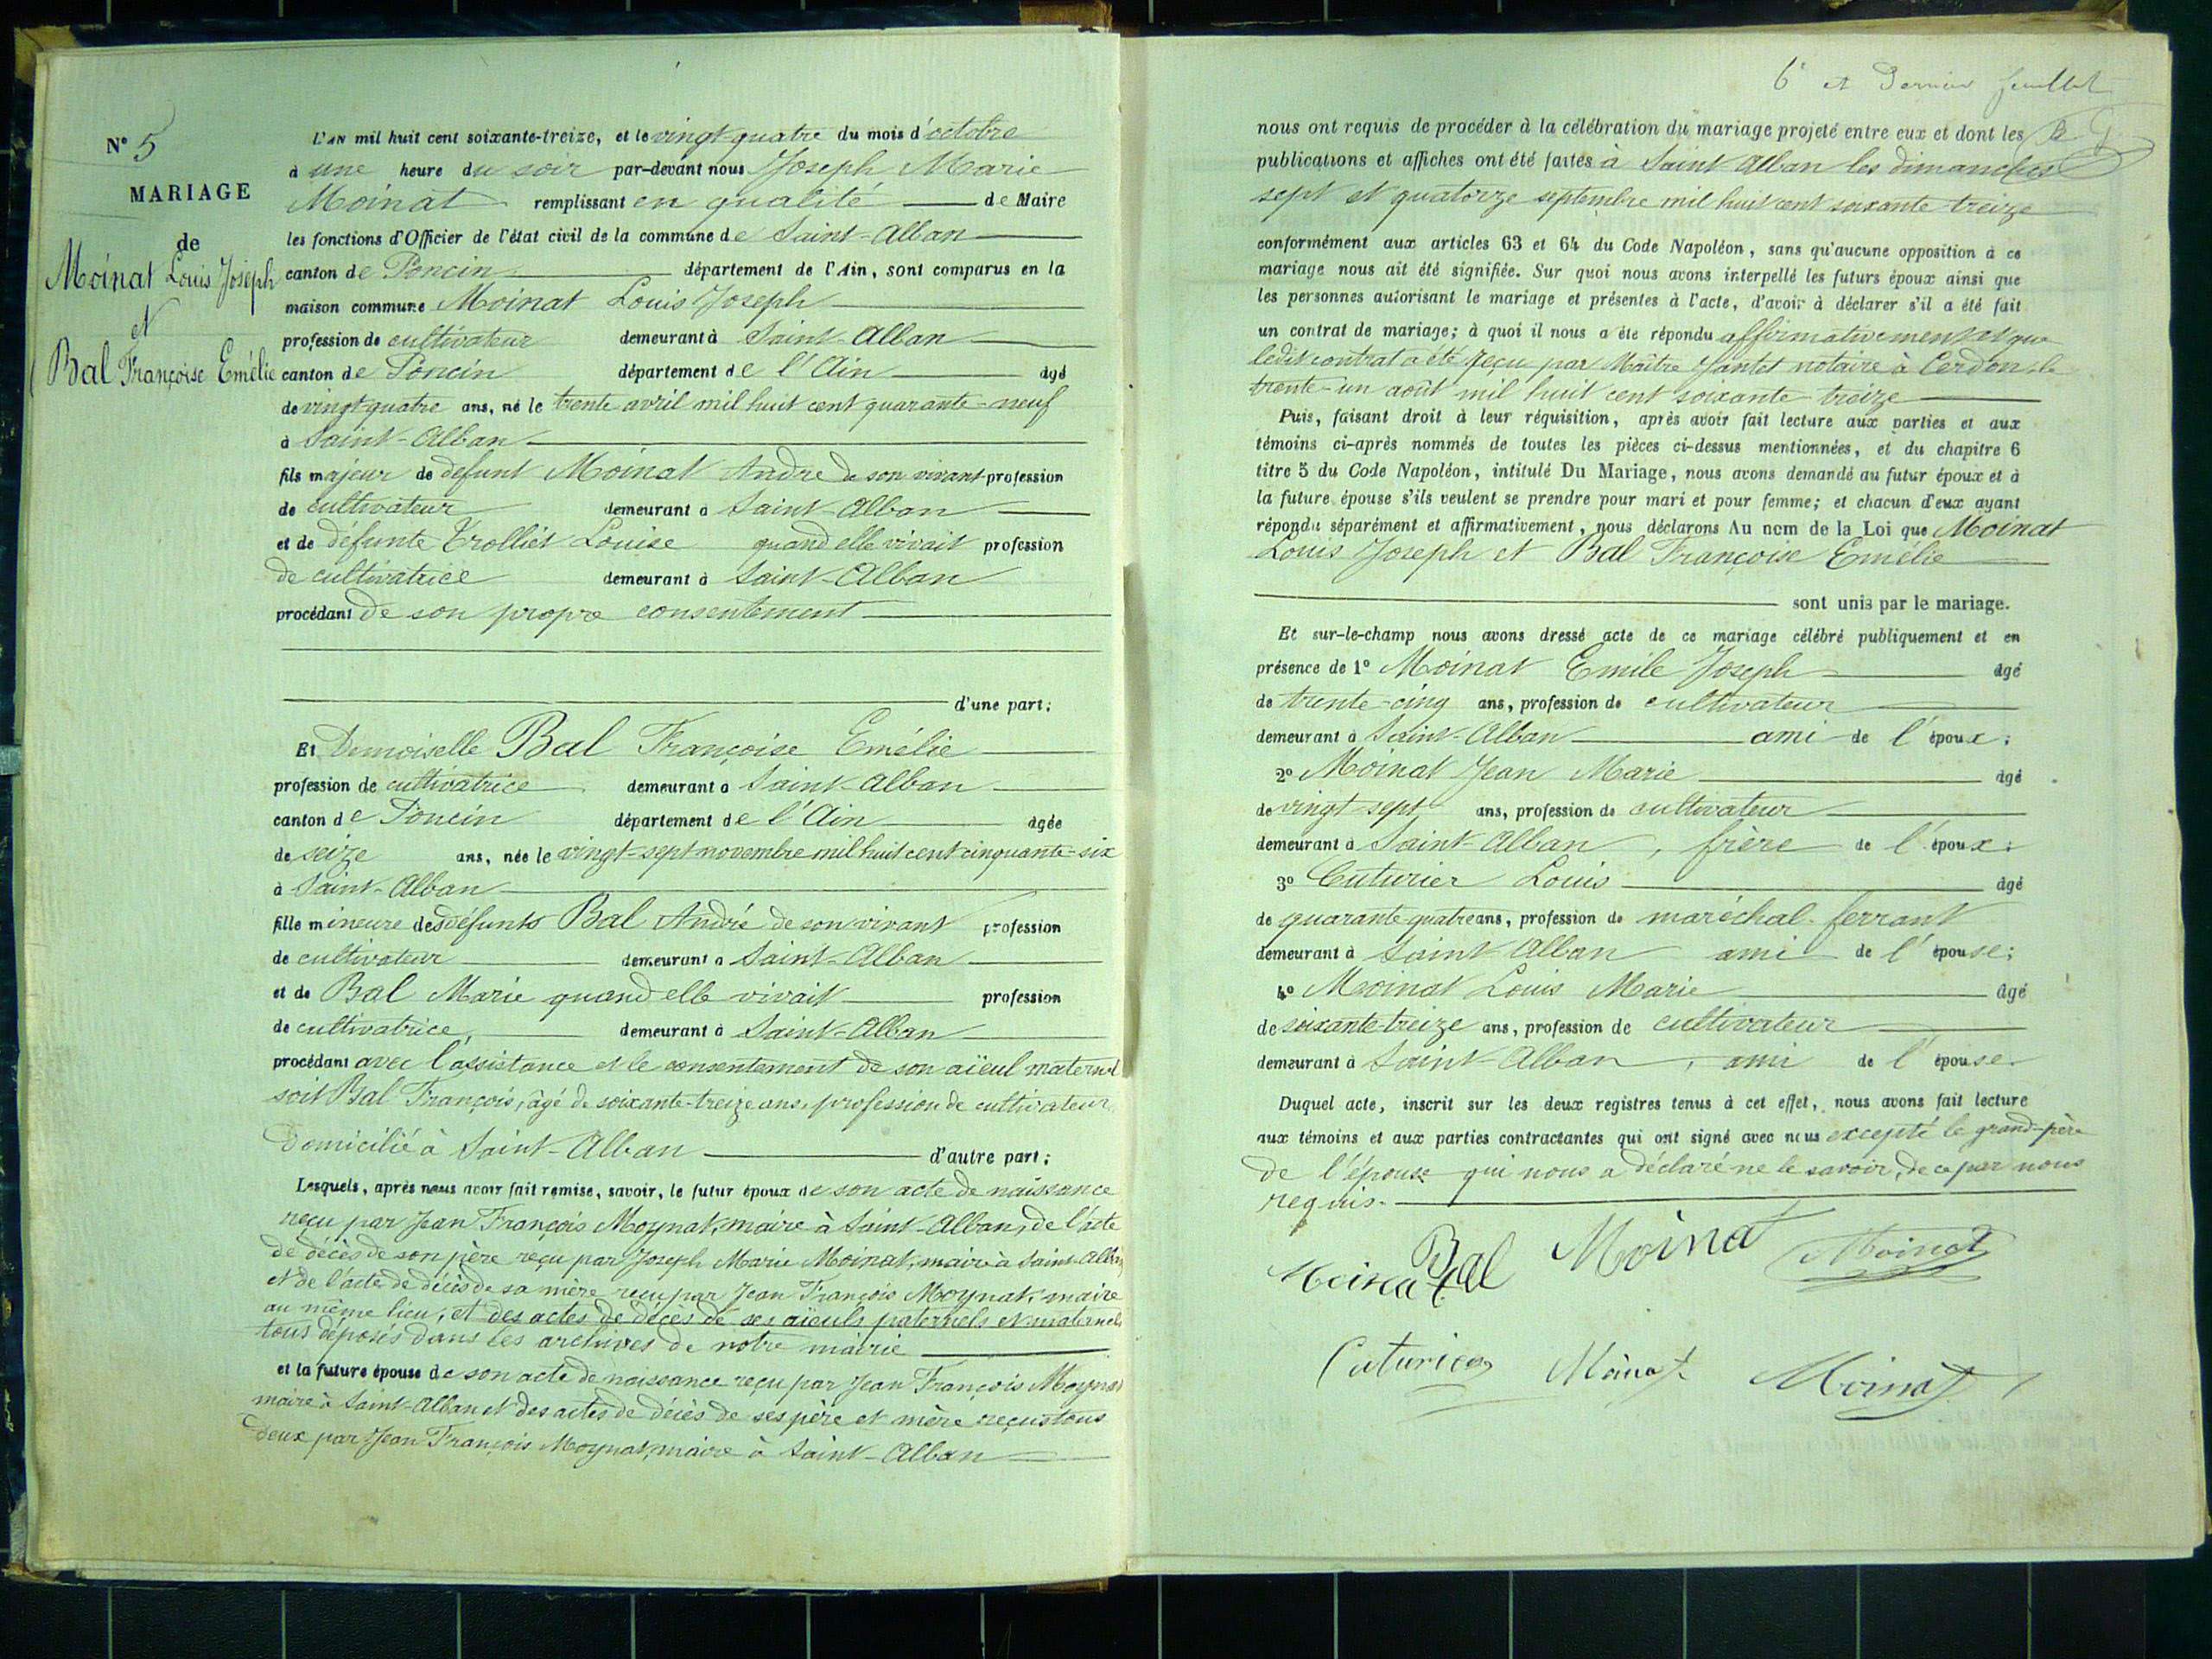 N° 5
MARIAGE
de
Moinat Louis Joseph
et
Bal Françoise Emélie
L'AN mil huit cent soixante-treize, et le vingt quatre du mois d'octobre
à une heure du soir par-devant nous Joseph Marie
Moinat remplissant en qualité de Maire
les fonctions d'Officier de l'état civil de la commune de Saint-Alban
canton de Poncin département de l'Ain, sont comparus en la
maison commune Moinat Louis Joseph
profession de cultivateur demeurant à Saint-Alban
canton de Poncin département de l'Ain âgé
de vingt quatre ans, né le trente avril mil huit cent quarante-neuf
à Saint-Alban
fils majeur de défunt Moinat André de son vivant profession
de cultivateur demeurant à Saint-Alban
et de défunte Trolliet Louise quand elle vivait profession
de cultivatrice demeurant à Saint-Alban
procédant de son propre consentement
d'une part;
Et Demoiselle Bal Françoise Emélie
profession de cultivatrice demeurant à Saint-Alban
canton de Poncin département de l'Ain âgée
de seize ans, née le vingt-sept novembre mil huit cent cinquante-six
à Saint-Alban
fille mineure des défunts Bal André de son vivant profession
de cultivateur demeurant à Saint-Alban
et de Bal Marie quand elle vivait profession
de cultivatrice demeurant à Saint-Alban
procédant avec l'assistance et le consentement de son aïeul maternel
soit Bal François, âgé de soixante-treize ans, profession de cultivateur,
Domicilié à Saint-Alban d'autre part;
Lesquels, après nous avoir fait remise, savoir, le futur époux de son acte de naissance
reçu par Jean François Moynat, maire à Saint-Alban, de l'acte
de décès de son père reçu par Joseph Marie Moinat, maire à Saint-Alban
et de l'acte de décès de sa mère reçu par Jean François Moynat, maire
au même lieu, et des actes de décès de ses aïeuls paternels et maternels
tous déposés dans les archives de notre mairie
et la future épouse de son acte de naissance reçu par Jean François Moynat
maire à Saint-Alban et des actes de décès de ses père et mère reçus tous
deux par Jean François Moynat, maire à Saint-Alban
6e et Dernier feuillet
nous ont requis de procéder à la célébration du mariage projeté entre eux et dont les
publications et affiches ont été faites à Saint Alban les dimanches
sept et quatorze septembre mil huit cent soixante treize
conformément aux articles 63 et 64 du Code Napoléon, sans qu'aucune opposition à ce
mariage nous ait été signifiée. Sur quoi nous avons interpellé les futurs époux ainsi que
les personnes autorisant le mariage et présentes à l'acte, d'avoir à déclarer s'il a été fait
un contrat de mariage; à quoi il nous a été répondu affirmativement et que
ledit contrat a été reçu par Maître Jantet notaire à Cerdon, le
trente-un août mil huit cent soixante-treize
Puis, faisant droit à leur réquisition, après avoir fait lecture aux parties et aux
témoins ci-après nommés de toutes les pièces ci-dessus mentionnées, et du chapitre 6
titre 5 du Code Napoléon, intitulé Du Mariage, nous avons demandé au futur époux et à
la future épouse s'ils veulent se prendre pour mari et pour femme; et chacun d'eux ayant
répondu séparément et affirmativement, nous déclarons Au nom de la Loi que Moinat
Louis Joseph et Bal Françoise Emélie
sont unis par le mariage.
Et sur-le-champ nous avons dressé acte de ce mariage célébré publiquement et en
présence de 1° Moinat Emile Joseph âgé
de trente-cinq ans, profession de cultivateur
demeurant à Saint-Alban ami de l'époux;
2° Moinat Jean Marie âgé
de vingt-sept ans, profession de cultivateur
demeurant à Saint-Alban, frère de l'époux;
3° Cuturier Louis âgé
de quarante quatre ans, profession de maréchal-ferrant
demeurant à Saint Alban ami de l'épouse;
4° Moinat Louis Marie âgé
de soixante-treize ans, profession de cultivateur
demeurant à Saint-Alban, ami de l'épouse.
Duquel acte, inscrit sur les deux registres tenus à cet effet, nous avons fait lecture
aux témoins et aux parties contractantes qui ont signé avec nous excepté le grand-père
de l'épouse qui nous a déclaré ne le savoir, de ce par nous
requis.
Bal Moinat Moinat
Moinat
Cuturier Moinat Moinat